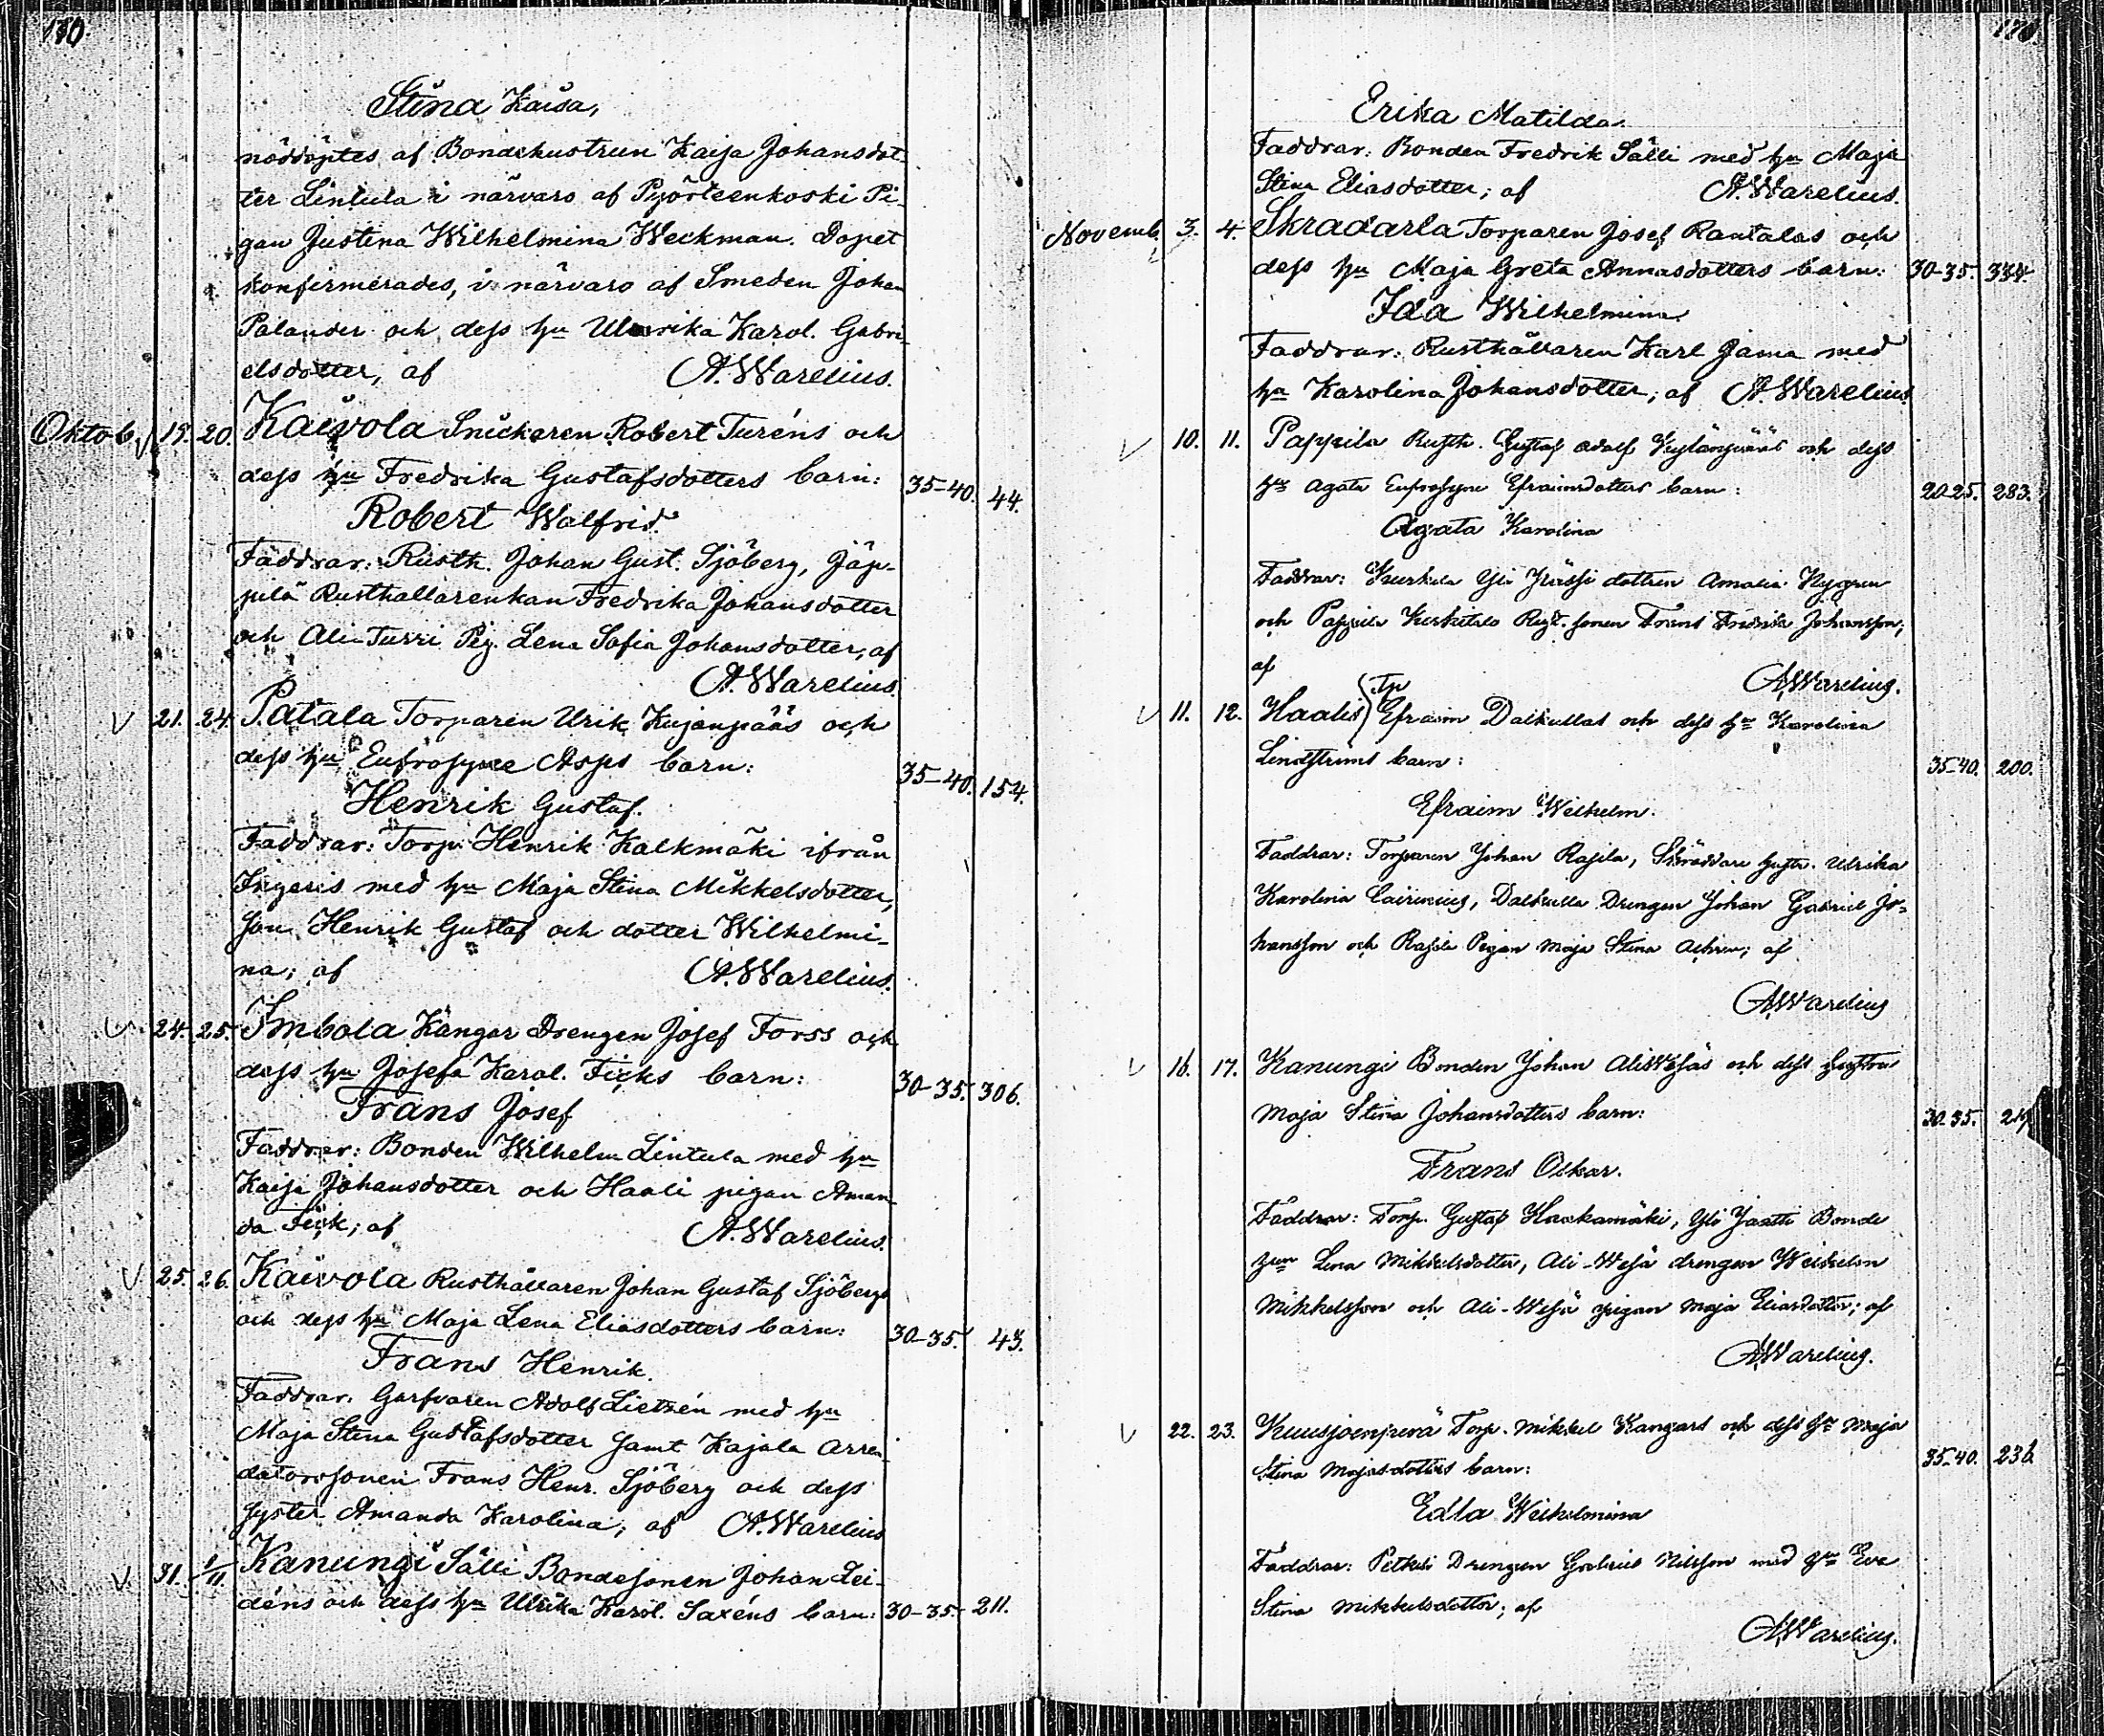 170.
Stina Kaisa,
nöddöptes af Bondehustrun Kaija Johansdot-
ter Lintula i närvaro af Pyörteenkoski Pi-
gan Justina Wilhelmina Weckman. Dopet
konfirmerades, i närvaro af Smeden Johan
Palander och dess hu Ulrika Karol. Gabri-
elsdotter, af A. Warelius.
Oktob. 19. 20. Kaivola Snickaren Robert Turéns och
dess hu Fredrika Gustafsdotters barn: 35-40. 44.
Robert Walfrid.
Faddrar: Rusth. Johan Gust. Sjöberg, Jäp-
pilä Rusthållarenkan Fredrika Johansdotter
och Ali-Turri Pig. Lena Sofia Johansdotter, af
A. Warelius.
21. 24. Patala Torparen Urik Kujanpääs och
dess hu Eufrosyne Asps barn: 35-40. 154.
Henrik Gustaf.
Faddrar: Torp. Henrik Kalkmäki ifrån
Ingeris med hu Maja Stina Mikkelsdotter,
son Henrik Gustaf och dotter Wilhelmi-
na; af A. Warelius.
24. 25. Imbola Kangar Drengen Josef Forss och
dess hu Josefa Karol. Ficks barn: 30-35. 306.
Frans Josef
Faddrar: Bonden Wilhelm Lintula med hu
Kaija Johansdotter och Haali pigan Aman-
da Fick; af A. Warelius.
25. 26. Kaivola Rusthållaren Johan Gustaf Sjöbergs
och dess hu Maja Lena Eliasdotters barn: 30-35. 43.
Frans Henrik.
Faddrar: Garfvaren Adolf Lietzén med hu
Maja Stina Gustafsdotter samt Kajala Arren-
datorssonen Frans Henr. Sjöberg och dess
syster Amanda Karolina; af A. Warelius
31. 1/11. Kanungi Sälli Bondesonen Johan Lei-
déns och dess hu Ulrika Karol. Saxéns barn: 30-35. 211.
170.
Erika Matilda.
Faddrar: Bonden Fredrik Sälli med hu Maja
Stina Eliasdotter; af A. Warelius.
Novemb. 3. 4. Skradarla Torparen Josef Rantalas och
dess hu Maja Greta Annasdotters barn: 30-35. 334.
Ida Wilhelmina.
Faddrar: Rusthållaren Karl Jama med
hu Karolina Johansdotter; af A. Warelius.
10. 11. Pappila Rusth. Gustaf Adolf och dess
hu Agata Eufrosyne Efraimsdotters barn: 20-25. 283.
Agata Karolina
Faddrar: Yli dottren Amalia Nygren
och Pappila Rust. sonen Frans Fredrik Johansson;
af A Warelius.
11. 12. Haalis Tp Efraim Dalkullas och dess hu Karolina
Lindströms barn: 35-40. 200.
Efraim Wilhelm.
Faddrar: Torparen Johan Rajila, Skräddare hustr. Ulrika
Karolina Cairenius, Dalkulla Drengen Johan Gabriel Jo-
hansson och Rajila Pigan Maja Stina; af
A Warelius
16. 17. Kanungi Bonden Johan Ali-Wesäs och dess hustrus
Maja Stina Johansdotters barn: 30-35.
Frans Oskar.
Faddrar: Torp. Gustaf Haukamäki, Yli Jaatti Bonde
hun Lena Mikkelsdotter, Ali-Wesä drengen Wilhelm
Mikkelsson och Ali-Wesä pigan Maja Eliasdotter; af
A Warelius.
22. 23. Kuusjoenperä Torp. Mikkel Kangars och dess hu Maja
Stina Majasdotters barn: 35-40. 236.
Edla Wilhelmina
Faddrar: Petkili Drengen Gabriel Nilsson med hu Eva
Stina Mikkelsdotter; af
A Warelius.